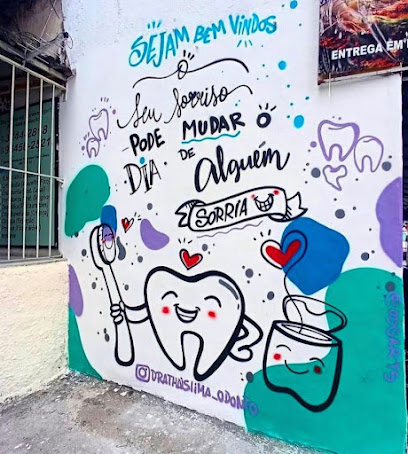 SEJAM BEM VINDOS
ENTREGA EM
O
Seu Sorriso
PODE MUDAR O
DIA DE Alguém
SORRIA